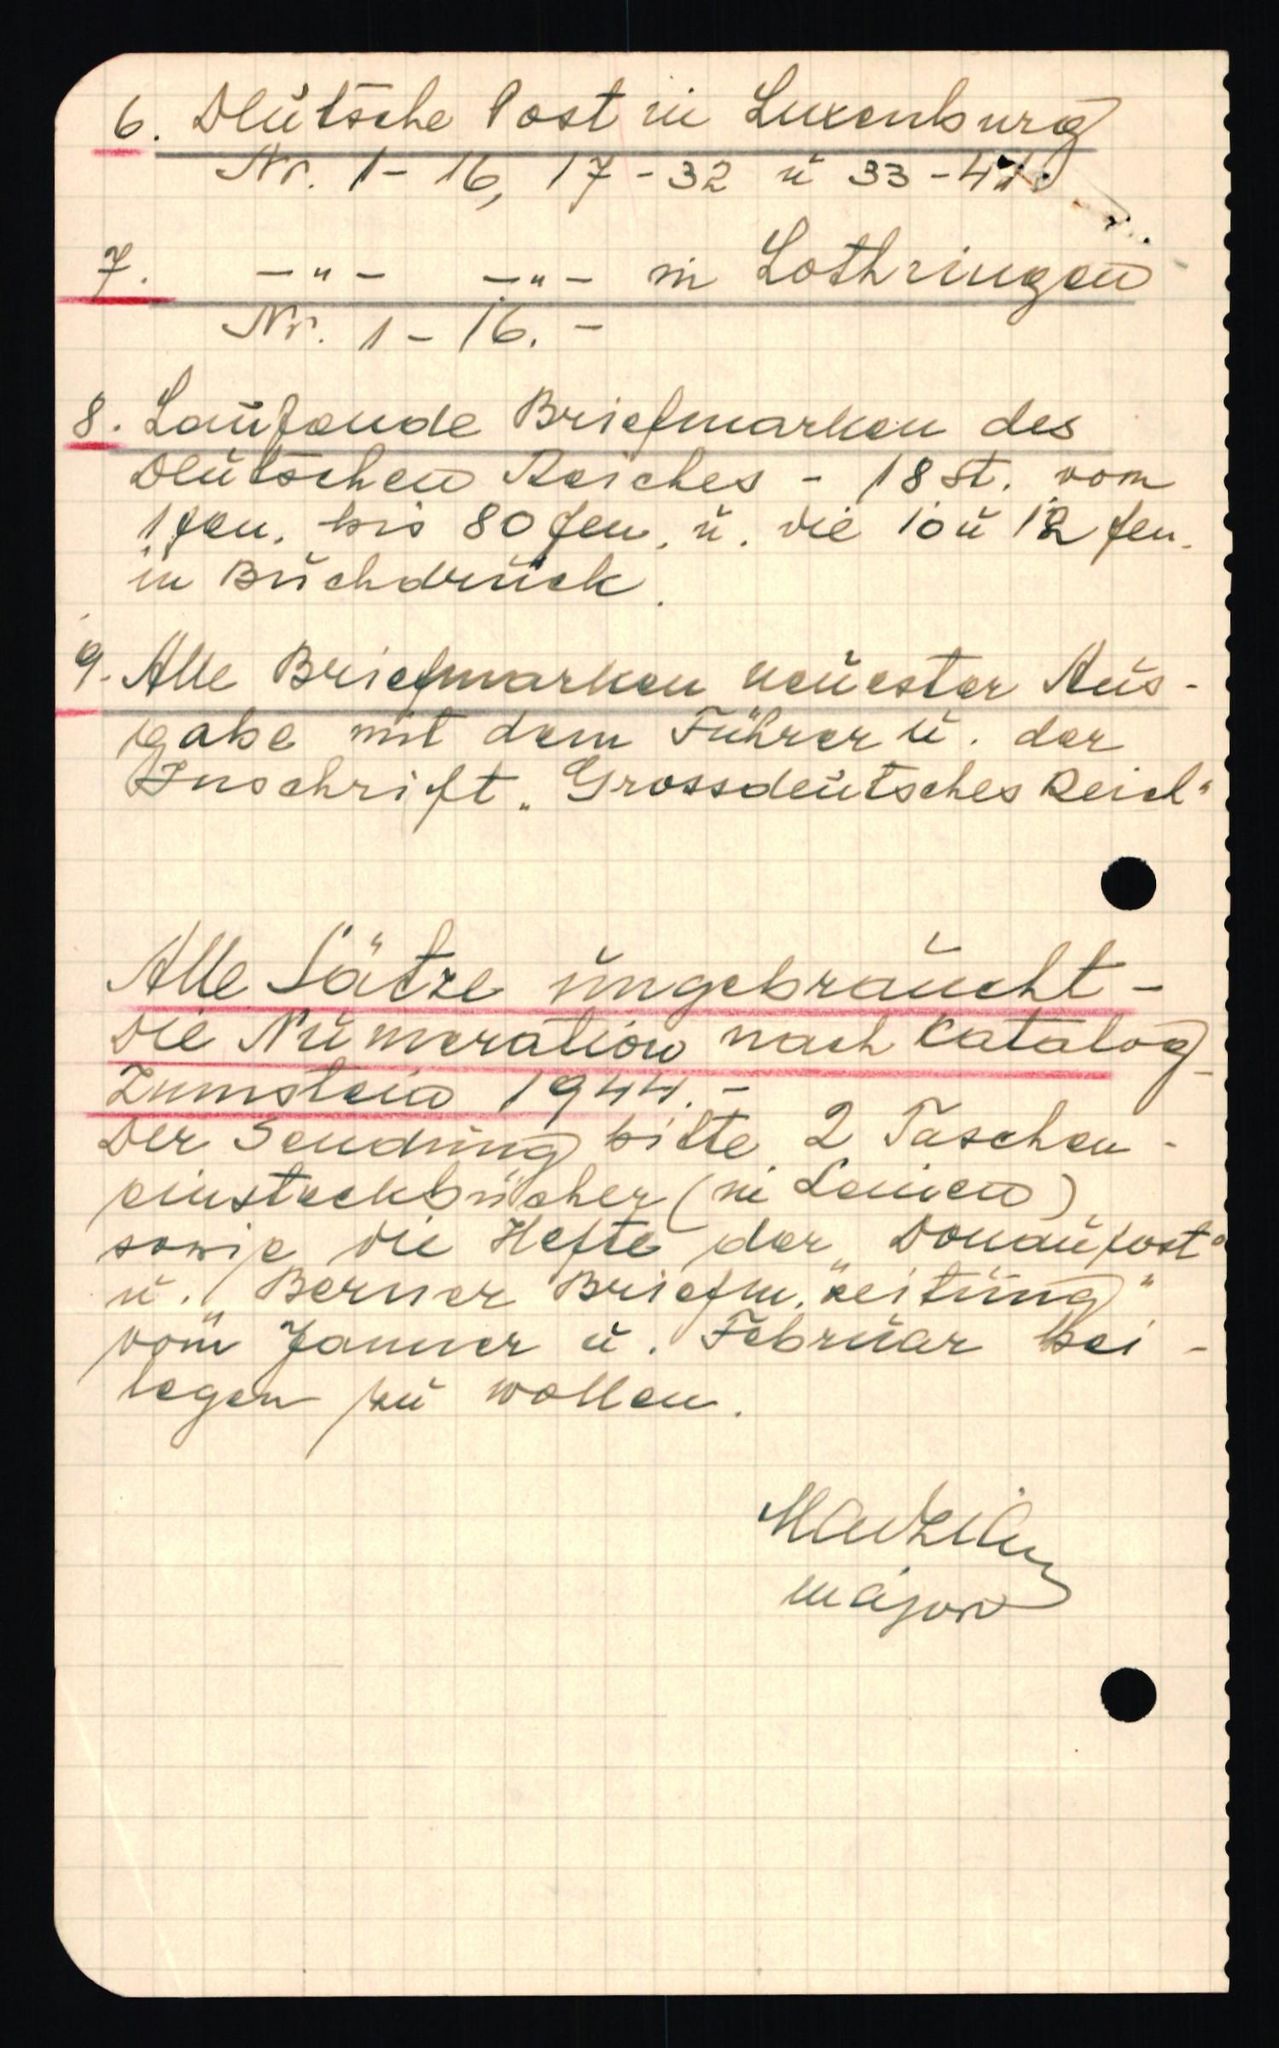 6. Deutsche Post in Luxenburg
Nr. 1 - 16, 17 - 32 ü 33 -
7. - " - - " - in Lothringen
Nr. 1 - 16. -
8. Laufende Briefmarken des
Deutschen Reiches - 18 St. vom
1 fen. bis 80 fen. ü. die 10 ü 12 fen.
in Buchdruck.
9. Alle Briefmarken neuester Aus-
gabe mit dem Führer ü. der
Inschrift „Grossdeutsches Reich"
Alle Sätze ungebraucht -
Die Numeration nach Catalog
Zumstein 1944. -
Der Sendung bitte 2 Taschen-
einsteckbücher (in Leinen)
sowie die Hefte der „Donaupost"
u. „Berner Briefm. zeitung"
vom Jänner u. Februar bei-
legen zu wollen.
major